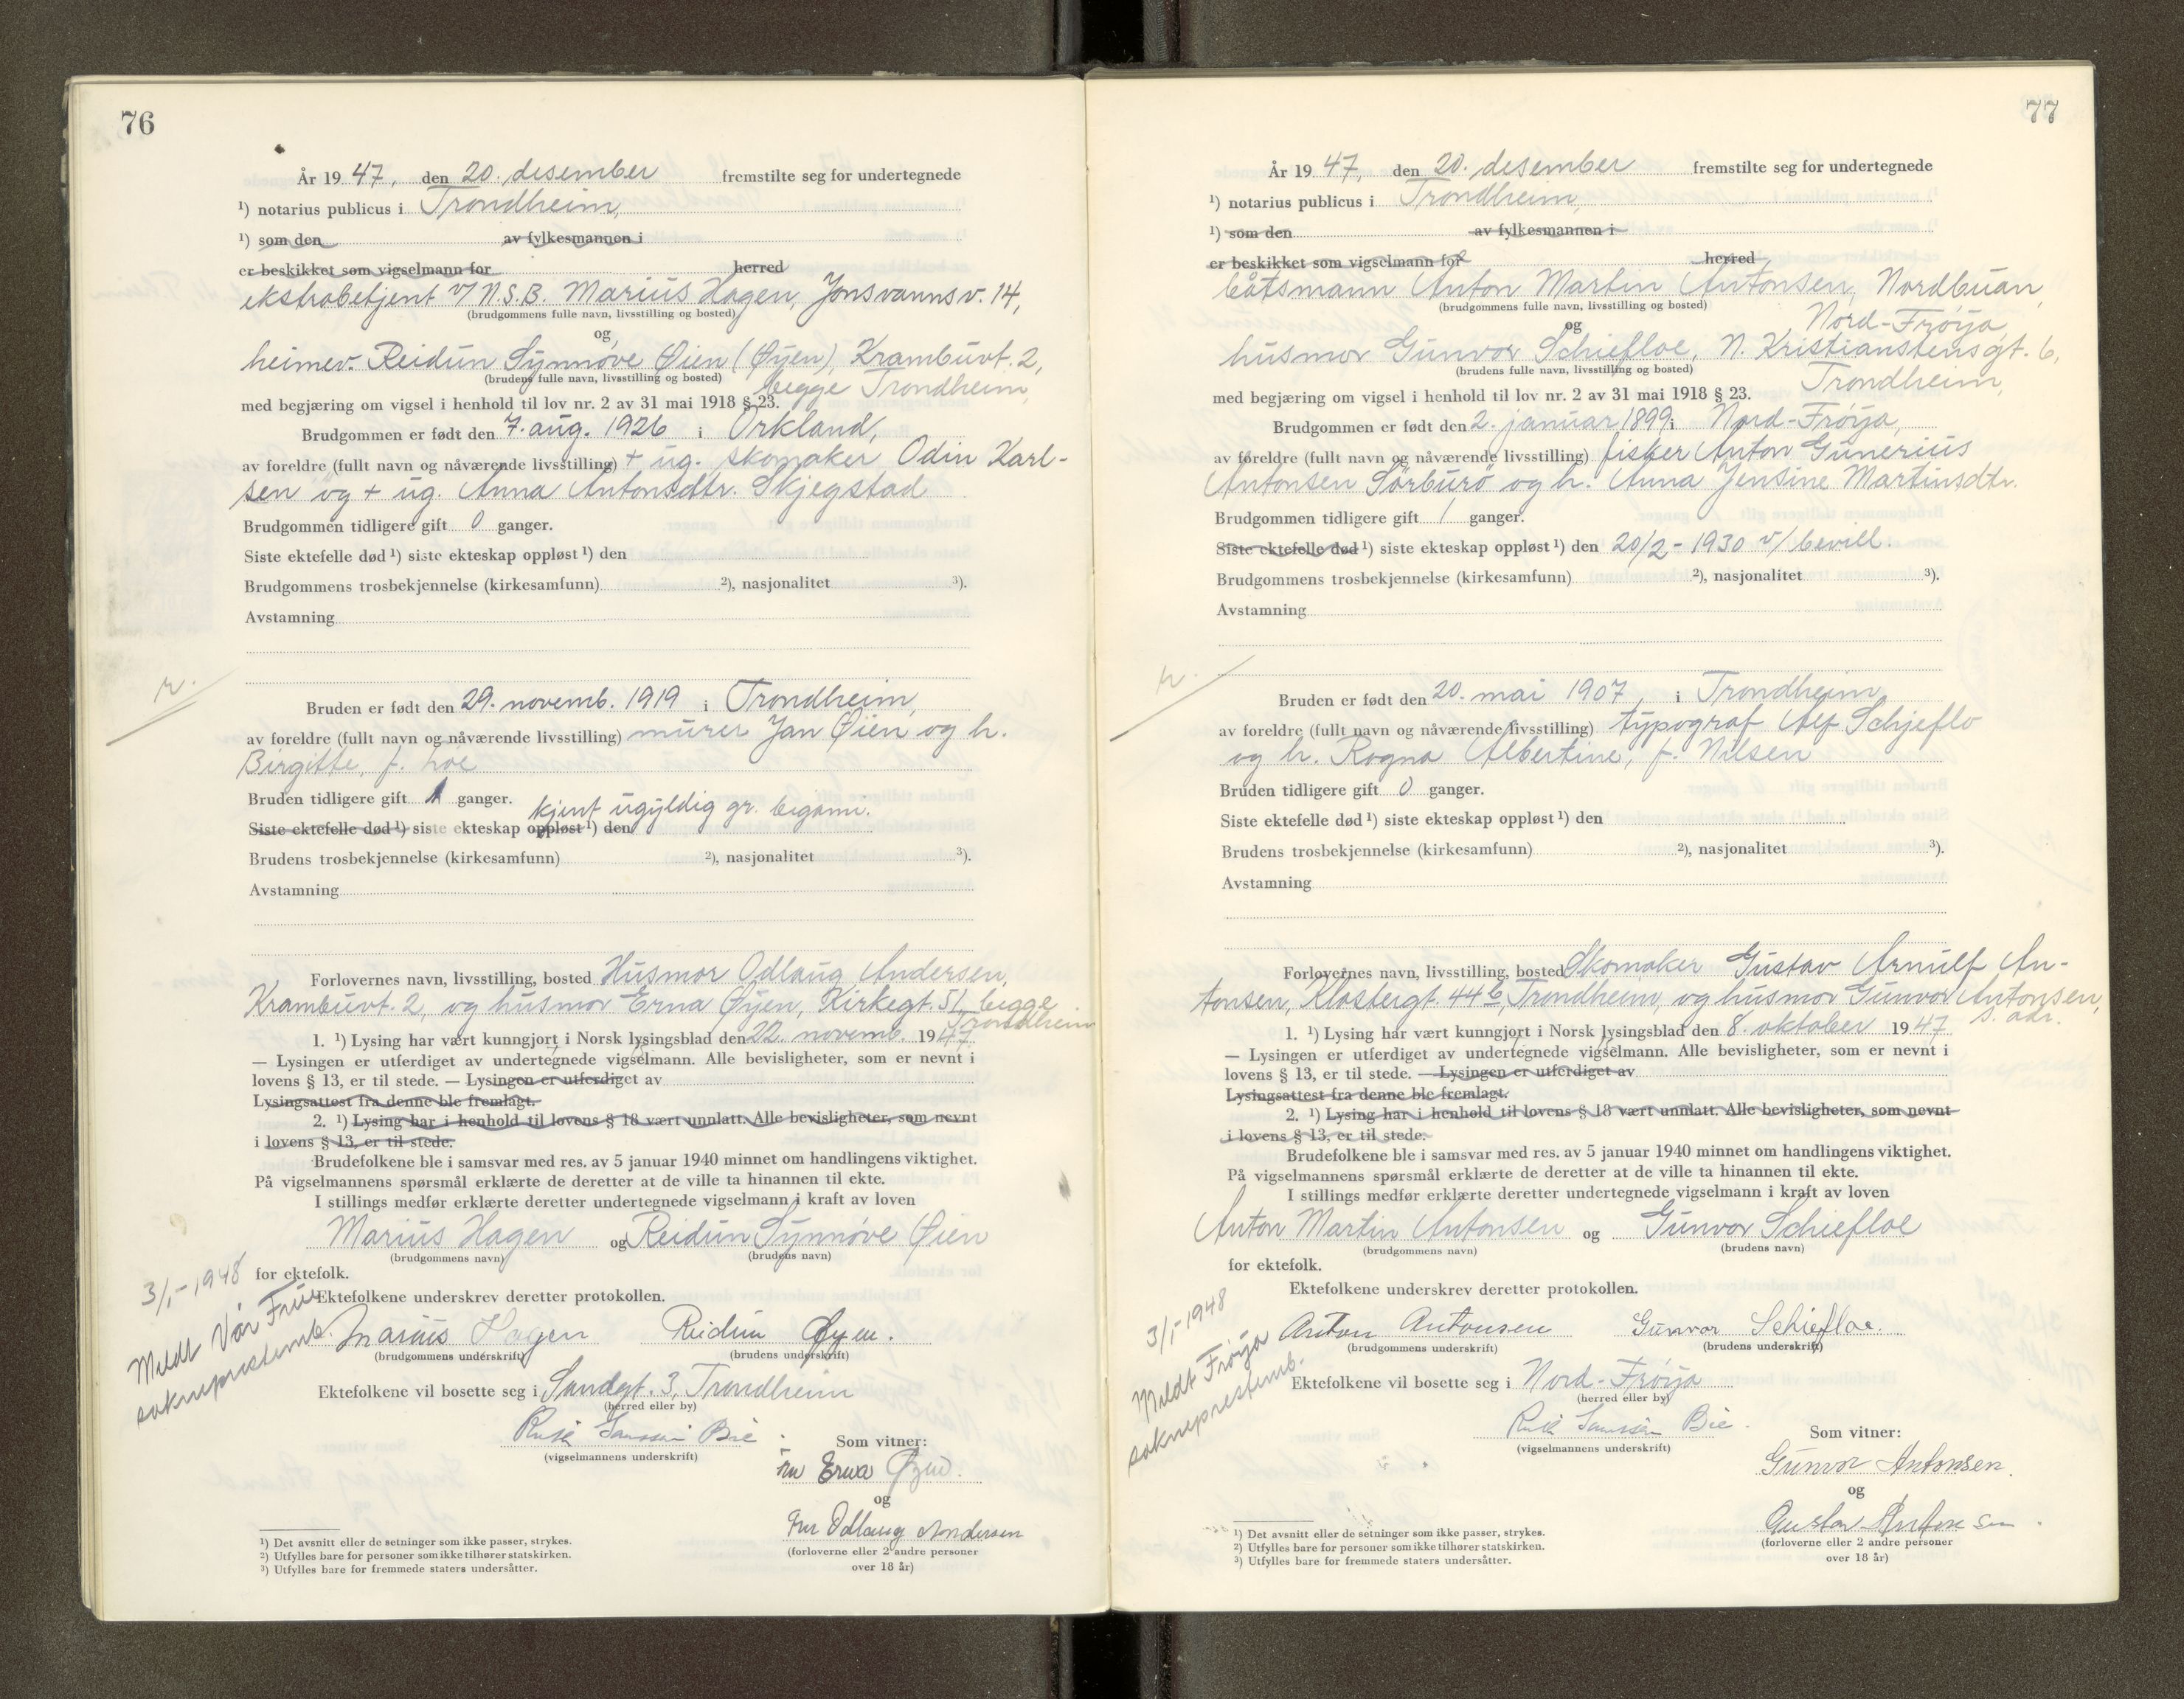 76
År 1947, den 20. desember fremstilte seg for undertegnede
¹) notarius publicus i Trondheim,
¹) som den av fylkesmannen i
er beskikket som vigselmann for herred
ekstrabetjent v/ N.S.B. Marius Hagen, Jonsvannsv. 14,
(brudgommens fulle navn, livsstilling og bosted)
og
heimev. Reidun Synnøve Øien (Øyen), Krambuvt. 2,
(brudens fulle navn, livsstilling og bosted)
begge Trondheim,
med begjæring om vigsel i henhold til lov nr. 2 av 31 mai 1918 § 23.
Brudgommen er født den 7. aug. 1926 i Orkland,
av foreldre (fullt navn og nåværende livsstilling) + ug. skomaker Odin Karl-
sen og + ug. Anna Antonsdtr. Skjegstad
Brudgommen tidligere gift 0 ganger.
Siste ektefelle død ¹) siste ekteskap oppløst ¹) den
Brudgommens trosbekjennelse (kirkesamfunn) ²), nasjonalitet ³).
Avstamning
Bruden er født den 29. novemb. 1919 i Trondheim,
av foreldre (fullt navn og nåværende livsstilling) murer Jan Øien og h.
Birgitte, f. Loe
Bruden tidligere gift 1 ganger.
kjent ugyldig gr. bigami.
Siste ektefelle død ¹) siste ekteskap oppløst ¹) den
Brudens trosbekjennelse (kirkesamfunn) ²), nasjonalitet ³).
Avstamning
Forlovernes navn, livsstilling, bosted Husmor Odlaug Andersen,
Krambuvt. 2, og husmor Erna Øyen, Kirkegt. 51, begge
Trondheim
1. ¹) Lysing har vært kunngjort i Norsk lysingsblad den 22. novemb. 1947
— Lysingen er utferdiget av undertegnede vigselmann. Alle bevisligheter, som er nevnt i
lovens § 13, er til stede. — Lysingen er utferdiget av
Lysingsattest fra denne ble fremlagt.
2. ¹) Lysing har i henhold til lovens § 18 vært unnlatt. Alle bevisligheter, som nevnt
i lovens § 13, er til stede.
Brudefolkene ble i samsvar med res. av 5 januar 1940 minnet om handlingens viktighet.
På vigselmannens spørsmål erklærte de deretter at de ville ta hinannen til ekte.
I stillings medfør erklærte deretter undertegnede vigselmann i kraft av loven
Marius Hagen og Reidun Synnøve Øien
(brudgommens navn) (brudens navn)
for ektefolk.
3/1-1948
Meldt Vår Frue
sokneprestemb.
Ektefolkene underskrev deretter protokollen.
Marius Hagen Reidun Øyen.
(brudgommens underskrift) (brudens underskrift)
Ektefolkene vil bosette seg i Sandgt. 3, Trondheim
(herred eller by)
(vigselmannens underskrift)
Som vitner:
fru Erna Øyen.
og
Fru Odlaug Andersen
(forloverne eller 2 andre personer
over 18 år)
¹) Det avsnitt eller de setninger som ikke passer, strykes.
²) Utfylles bare for personer som ikke tilhører statskirken.
³) Utfylles bare for fremmede staters undersåtter.
77
År 1947, den 20. desember fremstilte seg for undertegnede
¹) notarius publicus i Trondheim,
¹) som den av fylkesmannen i
er beskikket som vigselmann for herred
båtsmann Anton Martin Antonsen, Nordbuan,
(brudgommens fulle navn, livsstilling og bosted)
Nord-Frøya,
og
husmor Gunvor Schiefloe, N. Kristianstensgt. 6,
(brudens fulle navn, livsstilling og bosted)
Trondheim,
med begjæring om vigsel i henhold til lov nr. 2 av 31 mai 1918 § 23.
Brudgommen er født den 2. januar 1899 i Nord-Frøya,
av foreldre (fullt navn og nåværende livsstilling) fisker Anton Gunerius
Antonsen Sørburø og h. Anna Jensine Martinsdtr.
Brudgommen tidligere gift 1 ganger.
Siste ektefelle død ¹) siste ekteskap oppløst ¹) den 20/2-1930 v/ bevill.
Brudgommens trosbekjennelse (kirkesamfunn) ²), nasjonalitet ³).
Avstamning
Bruden er født den 20. mai 1907, i Trondheim,
av foreldre (fullt navn og nåværende livsstilling) typograf Alf Schjeflo
og h. Ragna Albertine, f. Nilsen
Bruden tidligere gift 0 ganger.
Siste ektefelle død ¹) siste ekteskap oppløst ¹) den
Brudens trosbekjennelse (kirkesamfunn) ²), nasjonalitet ³).
Avstamning
Forlovernes navn, livsstilling, bosted Skomaker Gustav Arnulf An-
tonsen, Klostergt. 44b, Trondheim, og husmor Gunvor Antonsen,
s. adr.
1. ¹) Lysing har vært kunngjort i Norsk lysingsblad den 8. oktober 1947
— Lysingen er utferdiget av undertegnede vigselmann. Alle bevisligheter, som er nevnt i
lovens § 13, er til stede. — Lysingen er utferdiget av
Lysingsattest fra denne ble fremlagt.
2. ¹) Lysing har i henhold til lovens § 18 vært unnlatt. Alle bevisligheter, som nevnt
i lovens § 13, er til stede.
Brudefolkene ble i samsvar med res. av 5 januar 1940 minnet om handlingens viktighet.
På vigselmannens spørsmål erklærte de deretter at de ville ta hinannen til ekte.
I stillings medfør erklærte deretter undertegnede vigselmann i kraft av loven
Anton Martin Antonsen og Gunvor Schiefloe
(brudgommens navn) (brudens navn)
for ektefolk.
3/1-1948
Meldt Frøya
sokneprestemb.
Ektefolkene underskrev deretter protokollen.
Anton Antonsen Gunvor Schiefloe.
(brudgommens underskrift) (brudens underskrift)
Ektefolkene vil bosette seg i Nord-Frøya
(herred eller by)
(vigselmannens underskrift)
Som vitner:
Gunvor Antonsen.
og
Gustav Antonsen.
(forloverne eller 2 andre personer
over 18 år)
¹) Det avsnitt eller de setninger som ikke passer, strykes.
²) Utfylles bare for personer som ikke tilhører statskirken.
³) Utfylles bare for fremmede staters undersåtter.